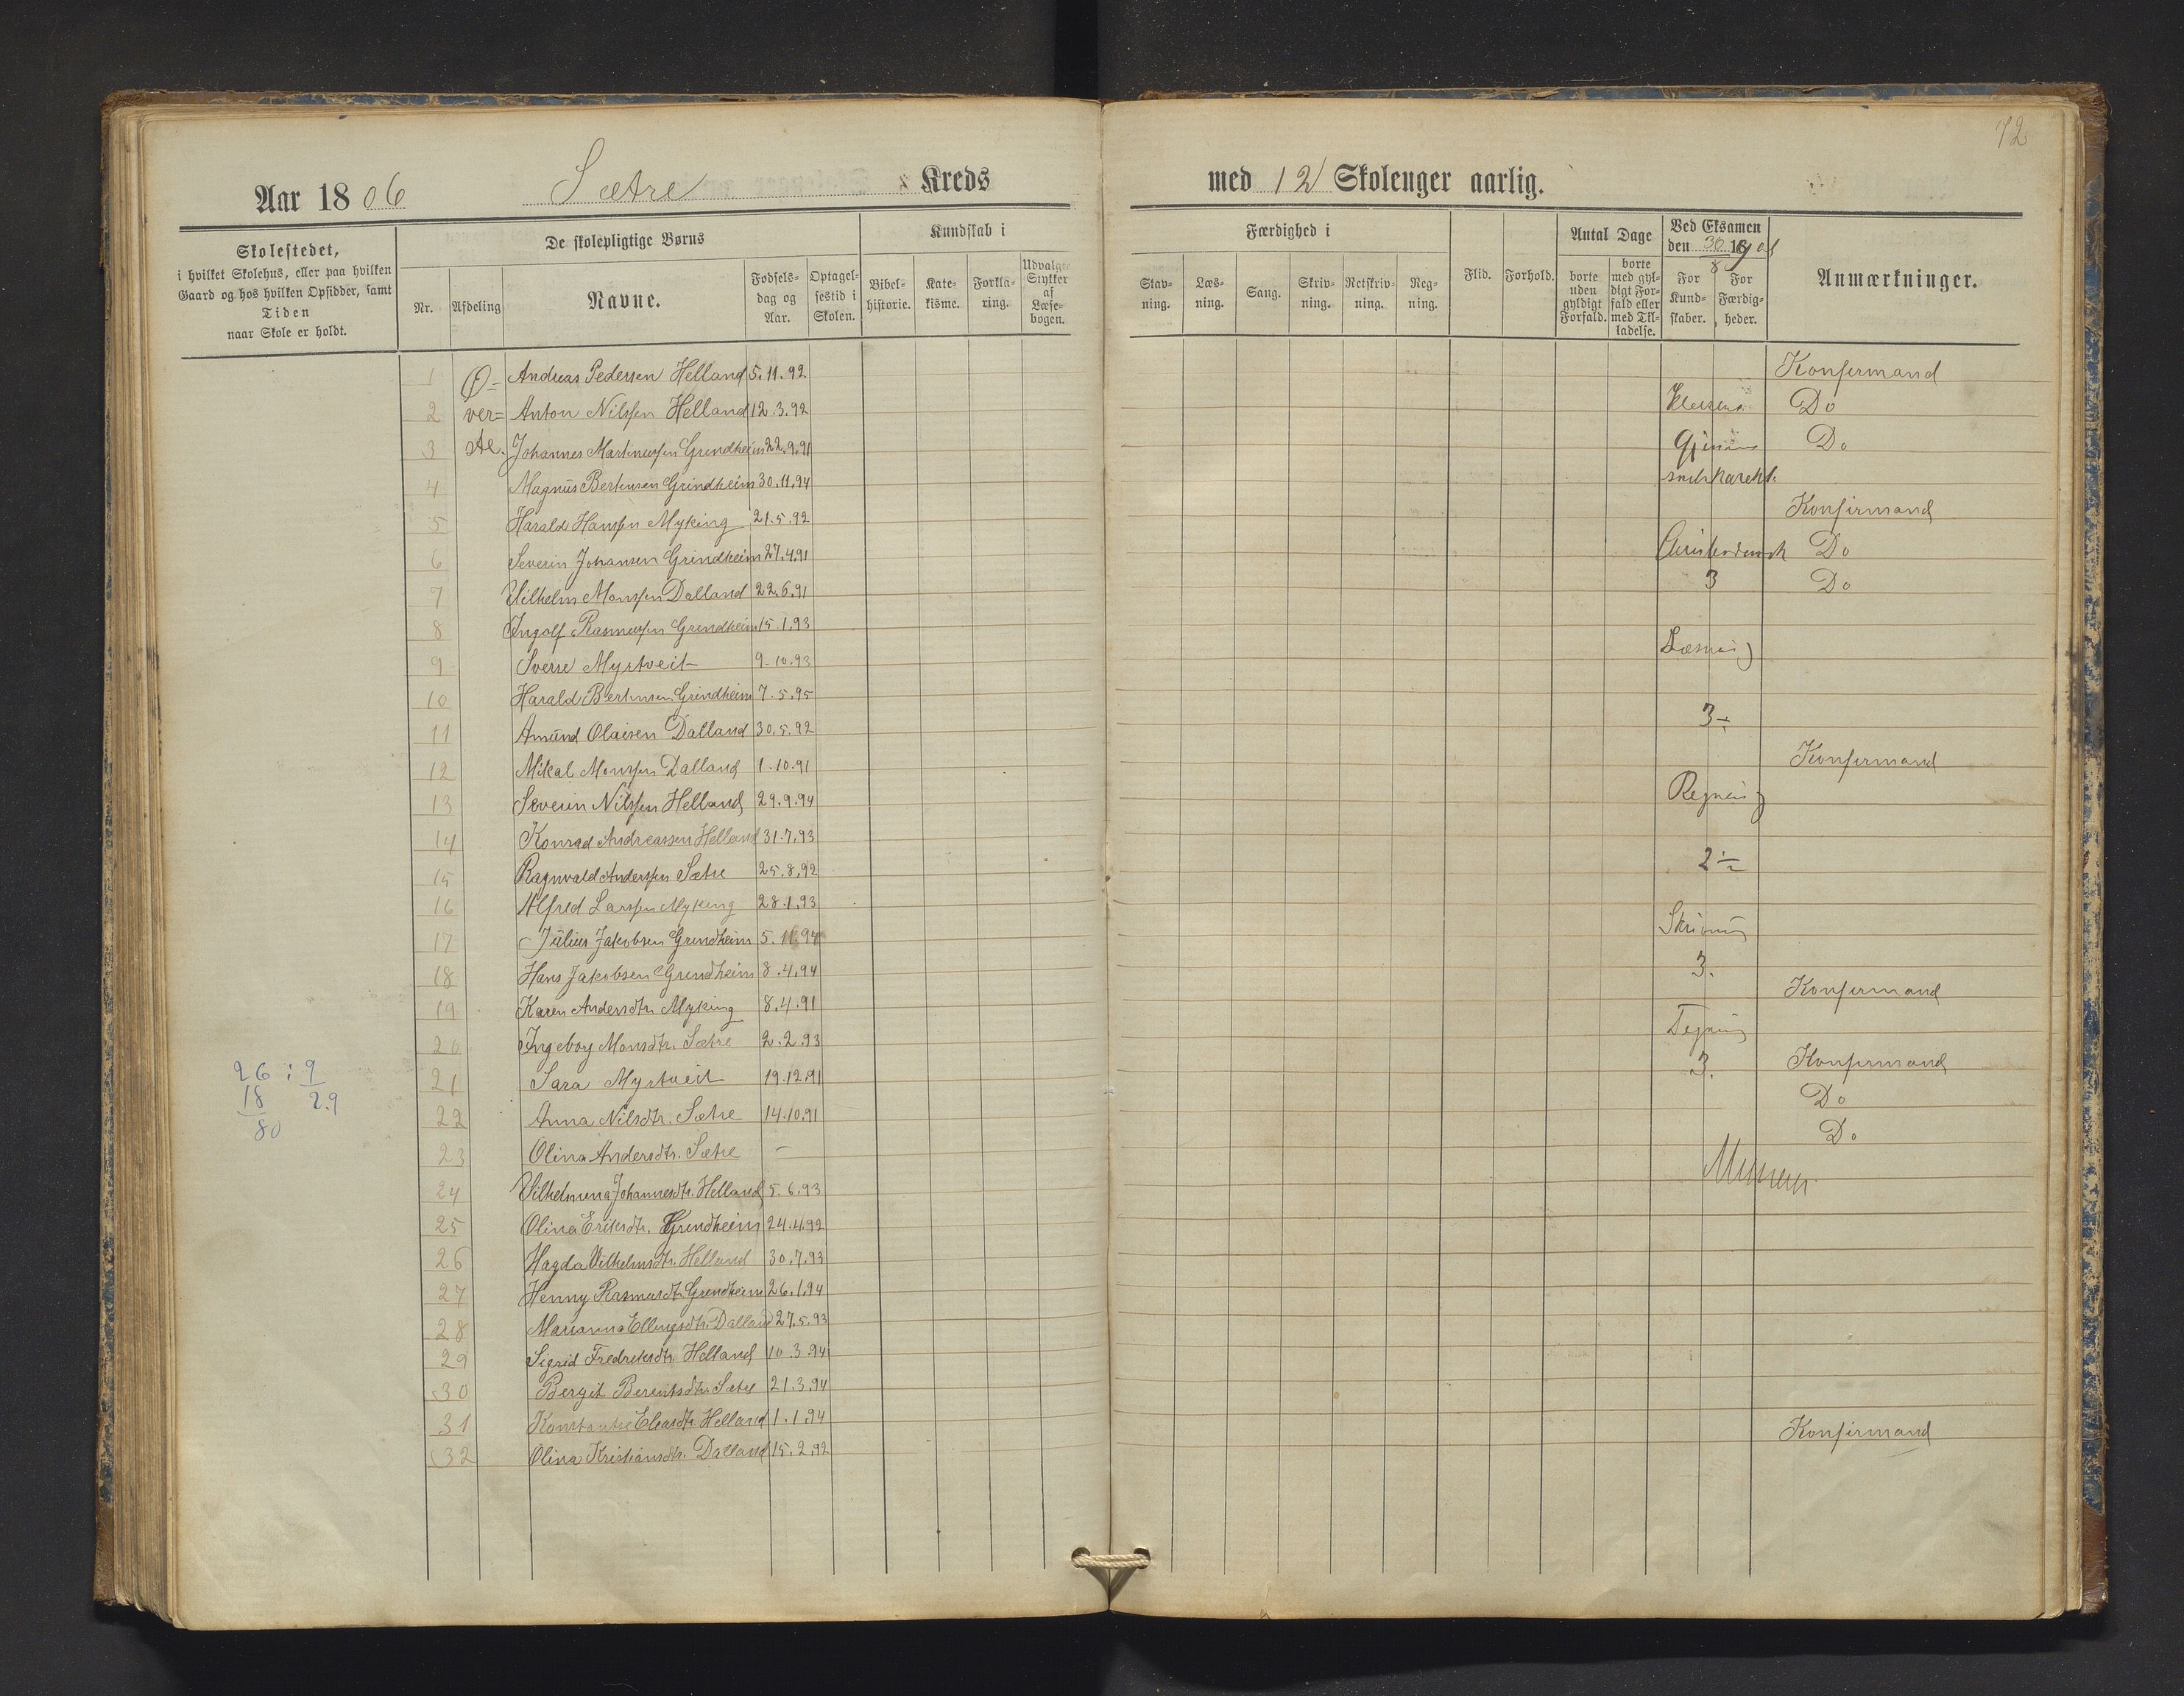 72
Aar 1806 Sætre Kreds med 12 Skoleuger aarlig.
Skolestedet,
i hvilket Skolehus, eller paa hvilken
Gaard og hos hvilken Opsidder, samt
Tiden
naar Skole er holdt.
De skolepligtige Børns
Nr. Afdeling Navne. Fødsels-dag og Aar. Optagel-sestid i Skolen.
Kundskab i
Bibel-historie. Kate-kisme. Forkla-ring. Udvalgte Stykker af Læse-bogen.
Færdighed i
Stav-ning. Læs-ning. Sang. Skriv-ning. Retskriv-ning. Reg-ning.
Flid. Forhold.
Antal Dage
borte uden gyldigt Forfald. borte med gyl-digt For-fald eller med Til-ladelse.
Ved Eksamen
den 30/8 19
For Kund-skaber. For Færdig-heder.
Anmærkninger.
1 Ø- Andreas Pedersen Helland 5.11.92 Konfirmand
2 ver= Anton Nilssen Helland 12.3.92 Klassens Do
3 ste. Johannes Martinussen Grindheim 22.9.91 Gjenn- Do
4 Magnus Bertinusen Grindheim 30.11.94 snitskarakt.
5 Harald Hanssen Myking 21.5.92 Konfirmand
6 Severin Johansen Grindheim 27.4.91 Do
7 Vilhelm Monssen Dalland 22.6.91 3 Do
8 Ingolf Rasmussen Grindheim 15.1.93
9 Sverre Myrtveit 9-10.93 Læsning
10 Harald Bertinusen Grindheim 7.5.95
11 Amund Olaisen Dalland 30.5.92 3÷
12 Mikal Monssen Dalland 1.10.91 Konfirmand
13 Severin Nilssen Helland 29.9.94 Regning
14 Konrad Andreassen Helland 31.7.93
15 Ragnvald Anderssen Sætre 25.8.92 2÷
16 Alfred Larssen Myking 28.1.93
17 Julius Jakobsen Grindheim 5.11.94 Skrivning
18 Hans Jakobsen Grindheim 8.4.94 3.
19 Karen Andersdtr. Myking 8.4.91 Konfirmand
20 Ingeborg Monsdtr. Sætre 2.2.93 Tegning
21 Sara Myrtveit 19.12.91 3. Konfirmand
22 Anna Nilsdtr. Sætre 14.10.91 Do
23 Olina Andersdtr. Sætre - Do
24 Vilhelmina Johannesdtr. Helland 5.6.93
25 Olina Eriksdtr. Grindheim 24.4.92
26 Magda Vilhelmsdtr. Helland 30.7.93
27 Henny Rasmusdtr. Grindheim 26.1.94
28 Marianna Ellingsdtr. Dalland 27.5.93
29 Sigrid Fredriksdtr. Helland 10.3.94
30 Bergit Berentsdtr. Sætre 21.3.94
31 Eliasdtr. Helland 1.1.94
32 Olina Kristiansdtr. Dalland 15.2.92 Konfirmand
26 : 9
18 2.9
80